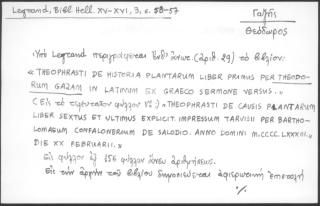 Legrand, Bibl Hell. XV-XVI, 3, c. 58-57
Γαζῆς
Θεόδωρος
Ὑπὸ Legrand περιγράφεται ἐνθ' ἀνωτ. (ἀριθ. 29) τὸ βιβλίον:
« THEOPHRASTI DE HISTORIA PLANTARUM LIBER PRIMUS PER THEODO-
RUM GAZAM IN LATINUM EX GRAECO SERMONE VERSUS. »
(Εἰς τὸ τελευταῖον φύλλον vº:) « THEOPHRASTI DE CAUSIS PLANTARUM
LIBER SEXTUS ET ULTIMUS EXPLICIT. IMPRESSUM TARVISII PER BARTHO-
LOMAEUM CONFALONERIUM DE SALODIO. ANNO DOMINI M.CCCC.LXXXIII.
DIE XX FEBRUARII. »
Εἰς φύλλον ἐξ 156 φύλλων ἄνευ ἀριθμήσεως.
Εἰς τὴν ἀρχὴν τοῦ βιβλίου δημοσιεύεται ἀφιερωτικὴ ἐπιστολὴ
·/.